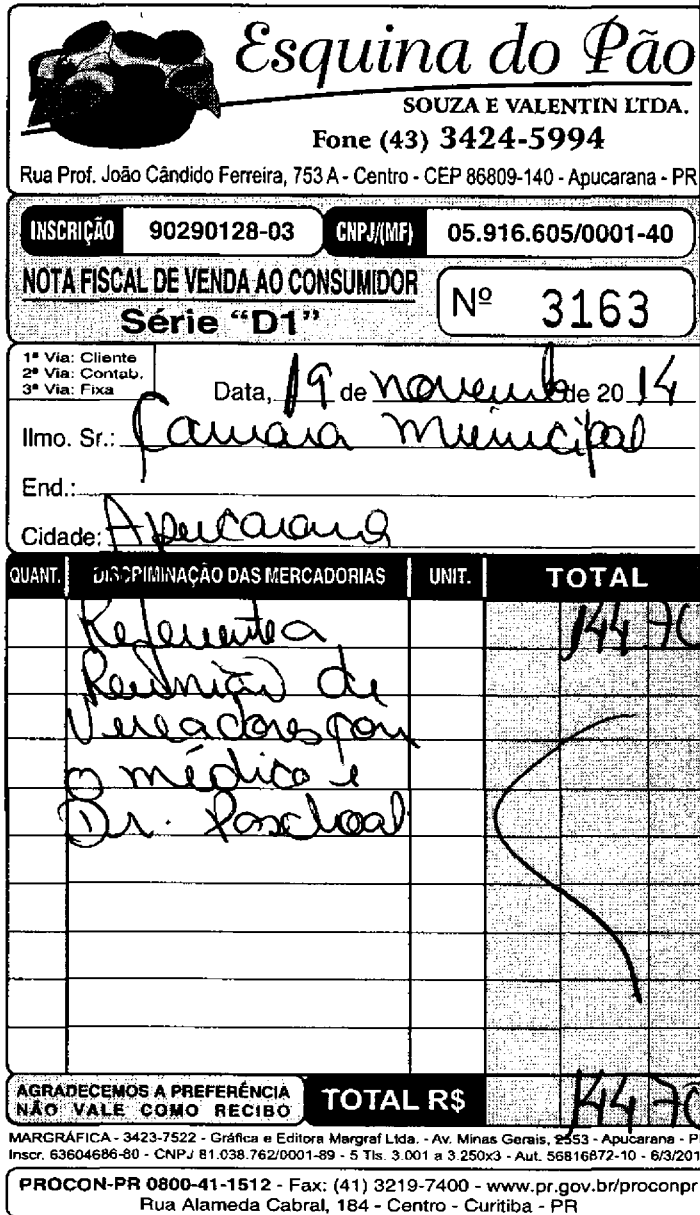 Esquina do Pão
SOUZA E VALENTIN LTDA.
Fone (43) 3424-5994
Rua Prof. João Cândido Ferreira, 753 A - Centro - CEP 86809-140 - Apucarana - PR
INSCRIÇÃO 90290128-03 CNPJ/(MF) 05.916.605/0001-40
NOTA FISCAL DE VENDA AO CONSUMIDOR
Série "D1"
Nº 3163
1ª Via: Cliente
2ª Via: Contab.
3ª Via: Fixa
Data, 19 de novemb de 20 14
Ilmo. Sr.: Camara Municipal
End.:
Cidade: Apucarana
QUANT. DISCRIMINAÇÃO DAS MERCADORIAS UNIT. TOTAL
Referente a 144 70
Reunião de
Vereadores
o médico e
Dr. Paschoal
AGRADECEMOS A PREFERÊNCIA
NÃO VALE COMO RECIBO
TOTAL R$ 144 70
MARGRÁFICA - 3423-7522 - Gráfica e Editora Margraf Ltda. - Av. Minas Gerais, 2553 - Apucarana - P
Inscr. 63604686-80 - CNPJ 81.038.762/0001-89 - 5 Tls. 3.001 a 3.250x3 - Aut. 56816872-10 - 6/3/201
PROCON-PR 0800-41-1512 - Fax: (41) 3219-7400 - www.pr.gov.br/proconpr
Rua Alameda Cabral, 184 - Centro - Curitiba - PR